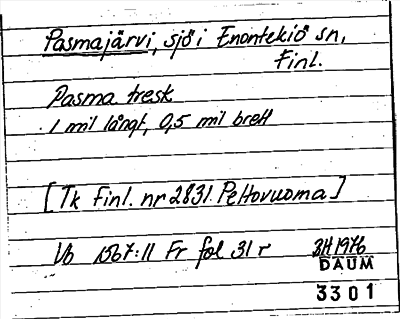 Pasmajärvi, sjö i Enontekiö sn,
Finl.
Pasma tresk
1 mil långt, 0,5 mil brett
[Tk Finl. nr 2831. Peltovuoma]
Vb 1567:11 Fr fol 31 r BH 1976
DAUM
3301